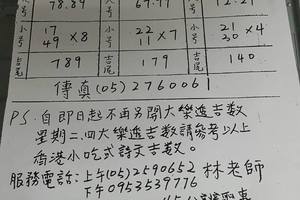 78.89
小号 17 49 × 8 小号 22 11 × 7 小号 21 30 × 4
吉尾 789 吉尾 179 吉尾 140
傳真(05)2760061
PS.自即日起不再另開大樂透吉数
星期二.四大樂透吉數請參考以上
香港小吃式詩文吉数。
服務電話:上午(05)2590652 林老師
下午0953539776